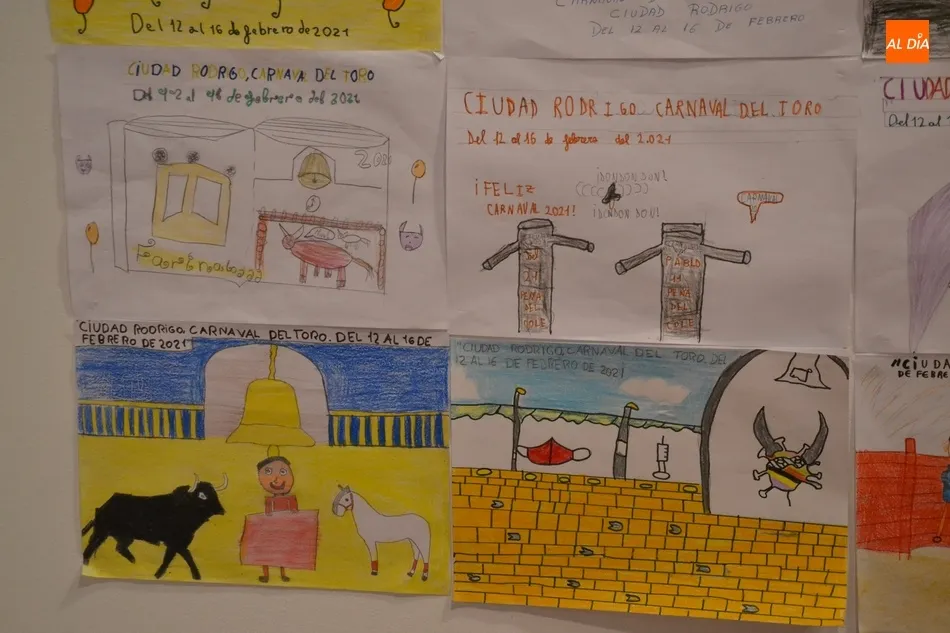 Del 12 al 16 de febrero de 2021
CIUDAD RODRIGO
DEL 12 AL 16 DE FEBRERO
AL DÍA
CIUDAD RODRIGO, CARNAVAL DEL TORO
Del 12 al 16 de febrero del 2021
Farinato
CIUDAD RODRIGO CARNAVAL DEL TORO
Del 12 al 16 de febrero del 2.021
¡FELIZ
CARNAVAL 2021!
¡DONDON DON!
¡DONDON DON!
CARNAVAL
PABLO
PEÑA
DEL
COLE
PEÑA
DEL
COLE
CIUDAD
Del 12 al 1
CIUDAD RODRIGO. CARNAVAL DEL TORO. DEL 12 AL 16 DE
FEBRERO DE 2021
"CIUDAD RODRIGO, CARNAVAL DEL TORO. DEL
12 AL 16 DE FEBRERO DE 2021
"CIUDA
DE FEBRE